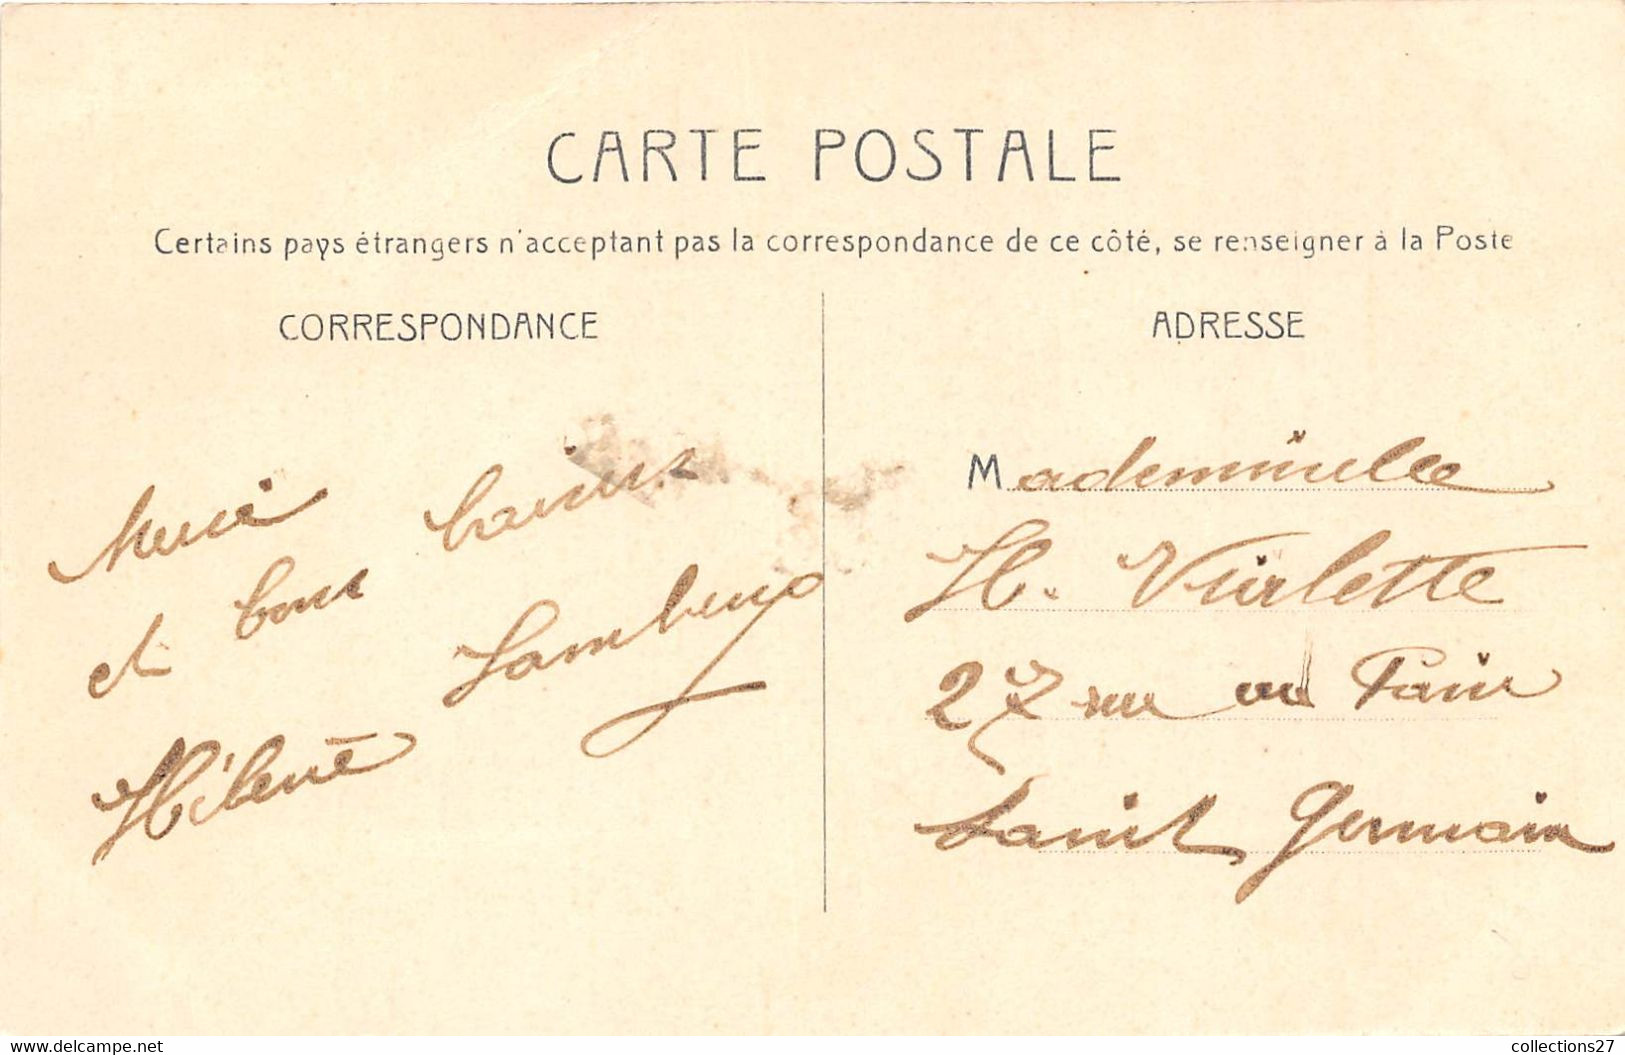 CARTE POSTALE
Certains pays étrangers n'acceptant pas la correspondance de ce côté, se renseigner à la Poste
CORRESPONDANCE
Merci
et bons baisers
Hélène
ADRESSE
Mademoiselle
H.
27 rue au Pain
Saint Germain
www.delcampe.net
collections27